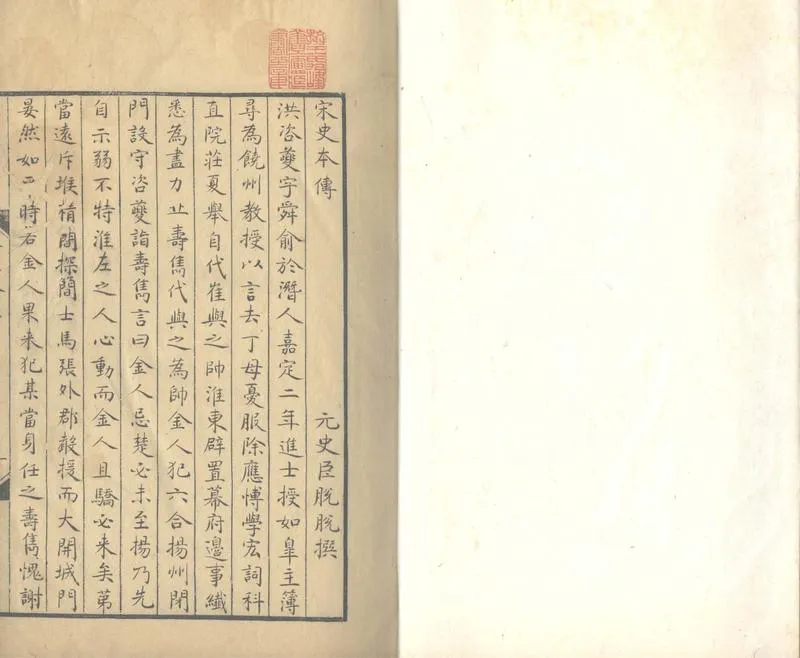 宋史本傳 元史臣脫脫撰
洪咨夔字舜俞於潛人嘉定二年進士授如皐主簿
尋為饒州教授以言去丁母憂服除應博學宏詞科
直院莊夏舉自代崔與之帥淮東辟置幕府邊事纖
悉為盡力丘壽雋代與之為帥金人犯六合揚州閉
門設守咨夔詣壽雋言曰金人忌楚必未至揚乃先
自示弱不特淮左之人心動而金人且驕必來矣第
當遠斥堠精間探簡士馬張外郡聲援而大開城門
晏然如平時若金人果來犯某當身任之壽雋愧謝